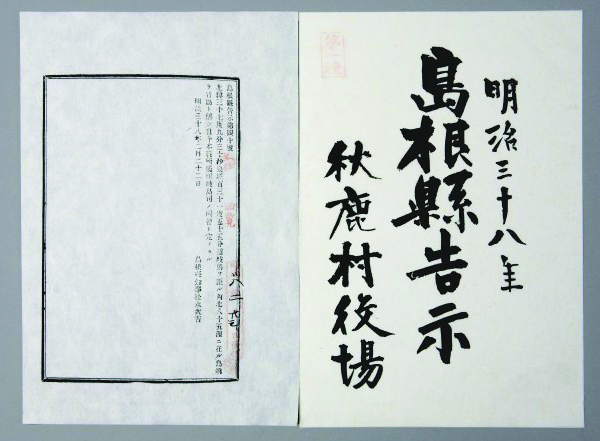 明治三十八年
島根縣告示
秋鹿村役場
島根縣告示第四十號
北緯三十七度九分三十秒東經百三十一度五十五分隱岐島ヲ距ル西北八十五浬ニ在ル島嶼
ヲ竹島ト稱シ自今本縣所屬隱岐島司ノ所管ト定メラル
明治三十八年二月二十二日
島根縣知事松永武吉